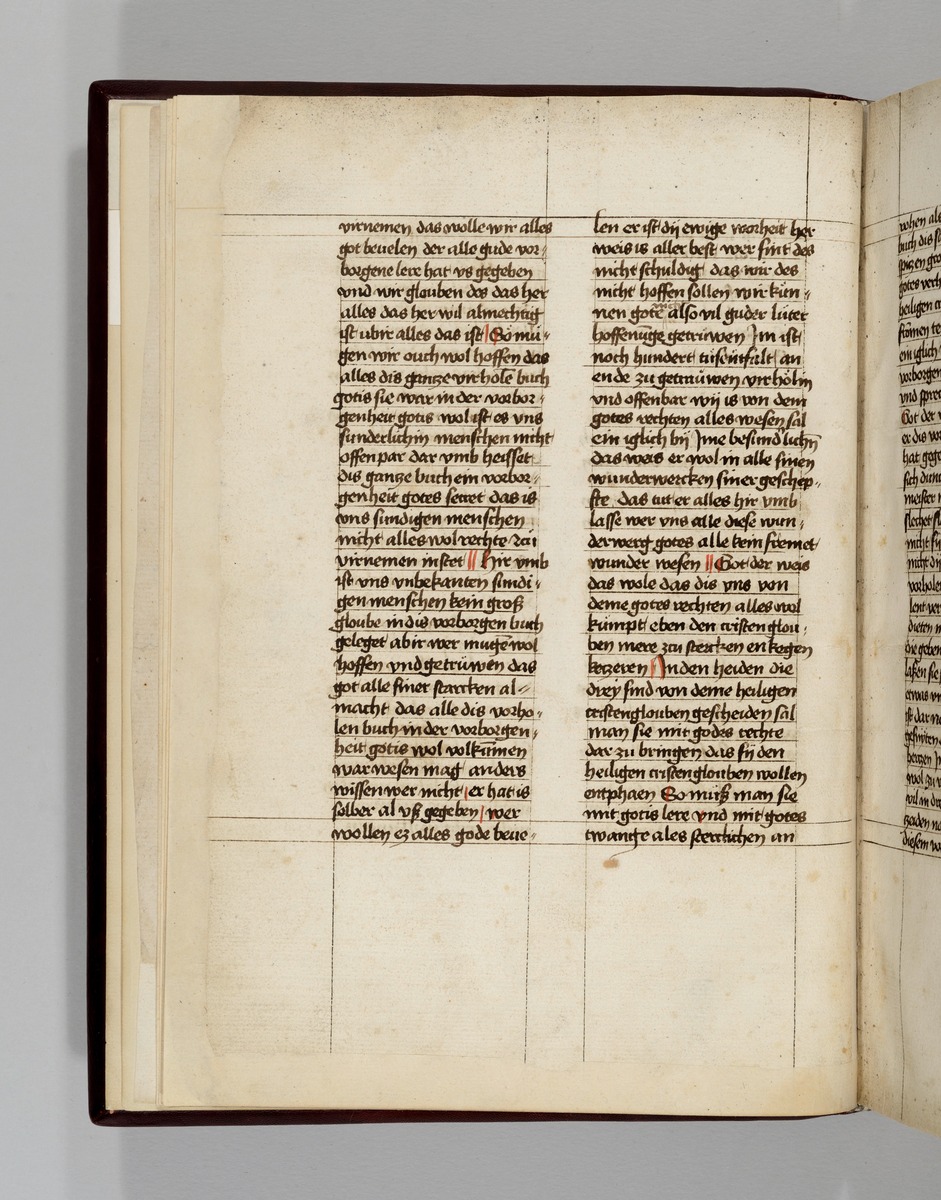 virnemen das wolle wir alles
got beuelen der alle gude vor-
borgene lere hat vs gegeben
vnd wir glouben des das her
alles das her wil almechtig
ist ubir alles das ist So mu-
gen wir ouch wol hoffen das
alles dis ganze virhole buch
gotis sie war in der vorbor-
genheit gotis wol ist es vns
sunderlichin menschen nicht
offenpar dar vmb heisset
dis ganze buch ein vorbor-
genheit gotes secret das is
vns sundigen menschen
nicht alles wol rechte zcu
virnemen in stet Hir vmb
ist vns vnbekanten sundi-
gen menschen kein groß
gloube in dis vorborgen buch
geleget abir wer mugen wol
hoffen vnd getruwen das
got alle siner starcken al-
macht das alle dis vorho-
len buch in der vorborgen-
heit gotis wol volkumen
war wesen mag anders
wissen wer nicht er hat is
solber al vß gegeben wer
wollen ez alles gode beue-
len er ist dij ewige worheit her
weis is aller best wer sint des
nicht schuldig das wir des
nicht hoffen sollen wir kun-
nen gote also vil guder luter
hoffenuge getruwen Im ist
noch hundert tusentfalt an
ende zu getrauwen virholin
vnd offenbar wij is von dem
gotes rechten alles wesen sal
ein iglich bij Ime besund'lichn
das weis er wol in alle sinen
wunderwercken siner geschep-
fte das tut er alles hir vmb
lasse wer vns alle diese wun-
derwerg gotes alle kein fremet
wunder wesen Got der weis
das wole das dis vns von
deme gotes rechten alles wol
kumpt eben den cristen glou-
ben mere zcu stercken en kegen
ketzeren In den heiden die
drey sind von deme heiligen
cristenglouben gescheiden sal
man sie mit godes rechte
dar zu bringen das sij den
heiligen cristenglouben wollen
entphaen So muß man sie
mit gotis lere vnd mit gotes
twange ales sterclichen an